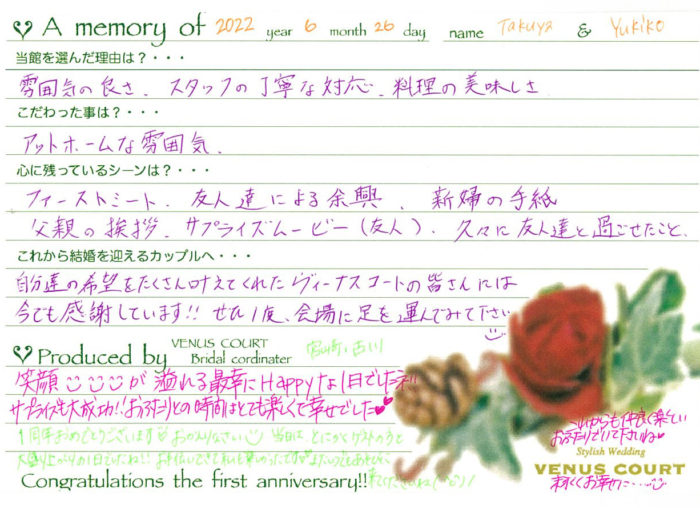 A memory of 2022 year 6 month 26 day name Takuya & Yukiko
当館を選んだ理由は？・・・
雰囲気の良さ、スタッフの丁寧な対応、料理の美味しさ
こだわった事は？・・・
アットホームな雰囲気、
心に残っているシーンは？・・・
ファーストミート、友人達による余興、新婦の手紙
父親の挨拶、サプライズムービー（友人）、久々に友人達と過ごせたこと、
これから結婚を迎えるカップルへ・・・
自分達の希望をたくさん叶えてくれたヴィーナスコートの皆さんには
今でも感謝しています!! ぜひ1度、会場に足を運んでみて下さい
Produced by VENUS COURT Bridal cordinater 宮崎、古川
笑顔が溢れる最幸にHappyな1日でしたネ!!
サプライズも大成功!! お2人との時間はとても楽しくて幸せでした
1周年おめでとうございます お2人らしい 当日は とにかくゲストのうと
大盛り上がりの1日でしたね!!
Congratulations the first anniversary!!
これからも仲良く楽しい
お2人でいて下さいね
Stylish Wedding
VENUS COURT
末永くお幸せに・・・